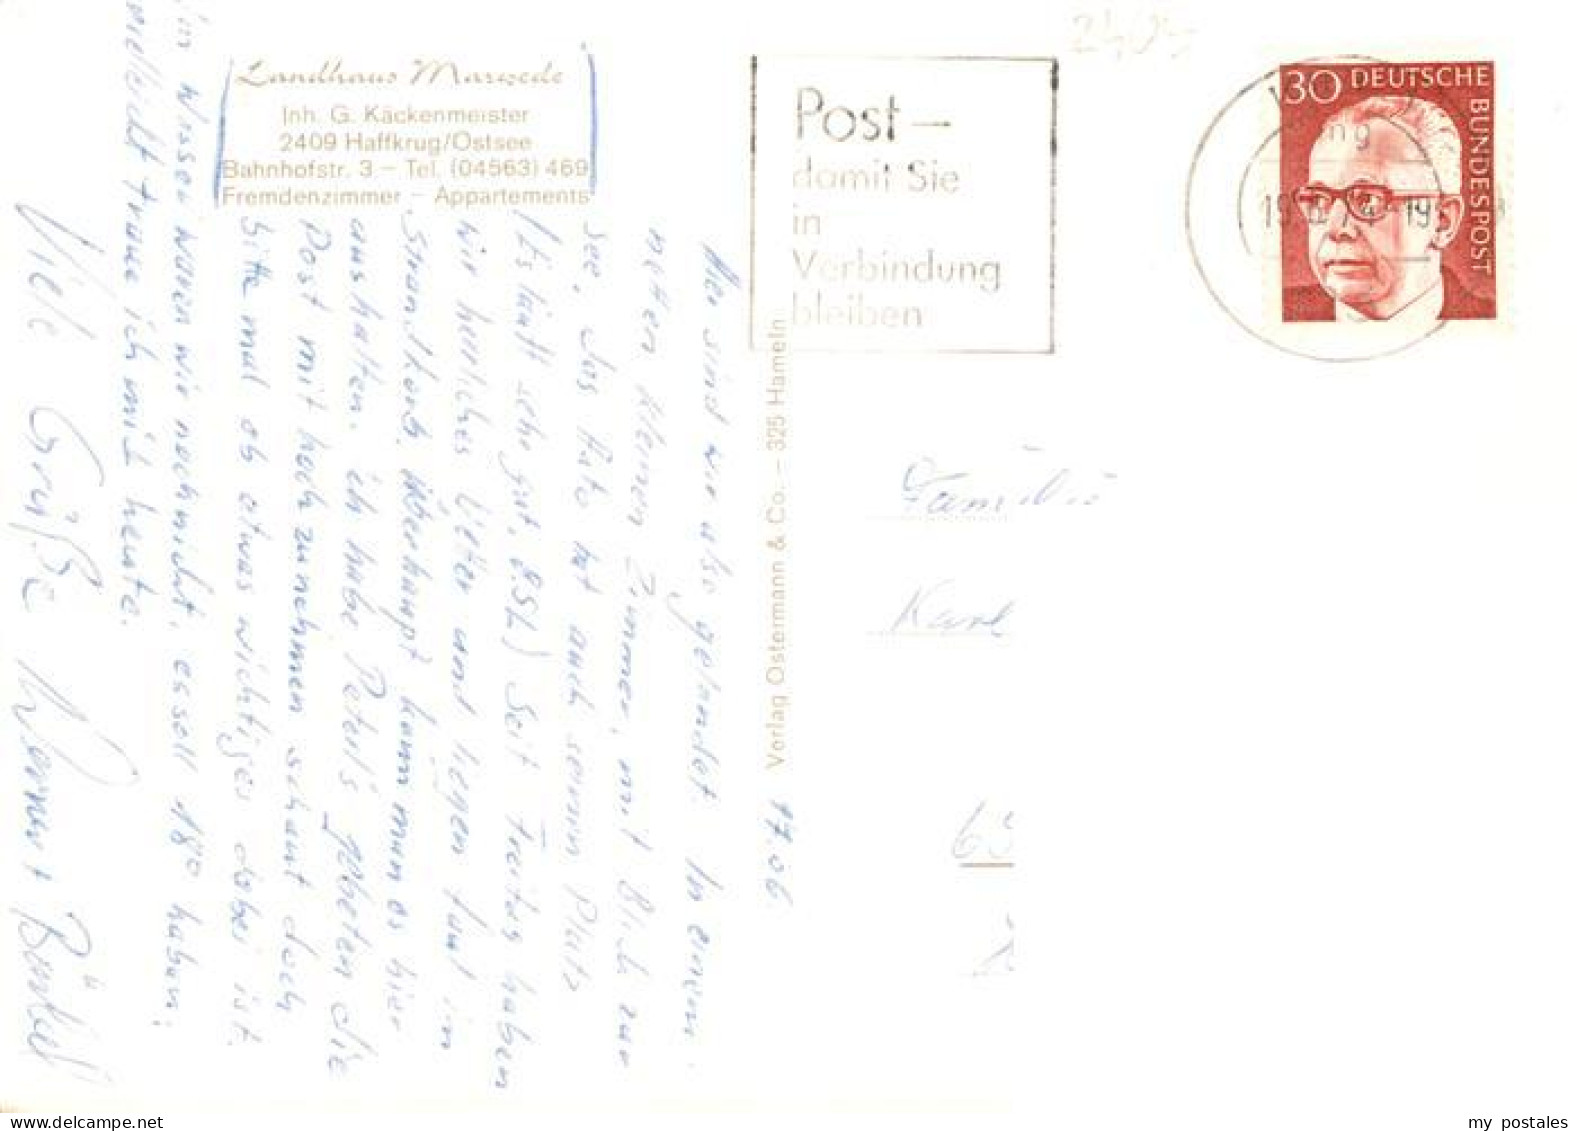 Landhaus Marwede
Inh. G. Käckenmeister
2409 Haffkrug/Ostsee
Bahnhofstr. 3 – Tel. (04563) 469
Fremdenzimmer – Appartements
Post –
damit Sie
in
Verbindung
bleiben
30 DEUTSCHE
BUNDESPOST
Verlag Ostermann & Co. – 325 Hameln
17.06
Hier sind wir also gelandet. In einem
netten kleinen Zimmer, mit Blick zur
See. Das Auto hat auch seinen Platz
(Es läuft sehr gut. 8.5L) Seit Freitag haben
wir herrliches Wetter und liegen faul im
Strandkorb. Überhaupt kann man es hier
aushalten. Ich habe Peters gebeten die
Post mit hoch zu nehmen schaut doch
bitte mal ob etwas wichtiges dabei ist.
im Wasser waren wir noch nicht, es soll 18° haben,
vielleicht traue ich mich heute.
Viele Grüße
Familie
Karl
my postales